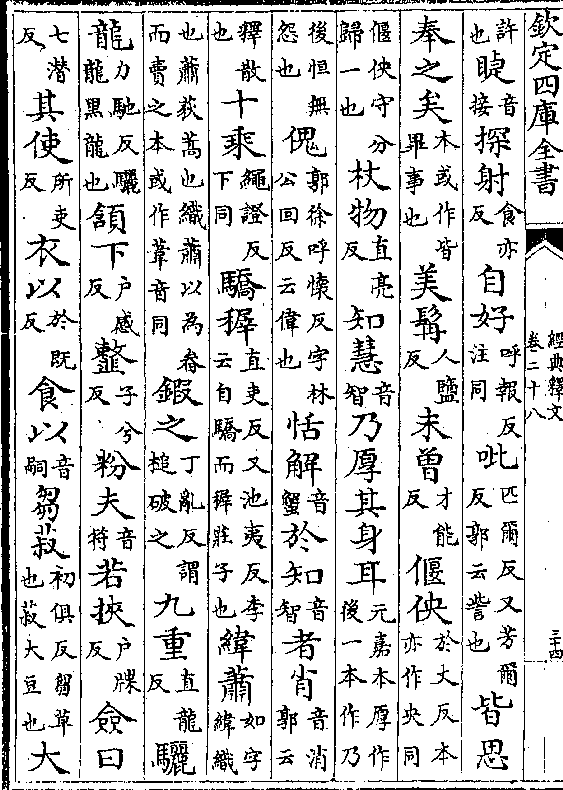 欽定四庫全書
經典釋文
卷二十八
三十四
許也睫音接探射食亦反自好呼報反注同吡匹爾反又芳爾反郭云訾也皆思
奉之矣木或作皆畢事也美髯人鹽反未曾才能反偃佒於大反本亦作央同
偃佒守分歸一也杖物直亮反知慧音智乃厚其身耳元嘉本厚作後一本作乃
後恒無怨也傀郭徐呼懷反字林公回反云偉也恬解音蟹於知音智者肖音消郭云
釋散也十乘繩證反下同驕穉直吏反又池夷反李云自驕而穉莊子也緯蕭如字緯織
也蕭荻蒿也織蕭以為畚而賣之本或作葦音同鍜之丁亂反謂槌破之九重直龍反驪
龍力馳反驪龍黑龍也頷下户感反韲子兮反粉夫音符若挾户牒反僉曰
七潛反其使所吏反衣以於既反食以音嗣芻菽初俱反芻草也菽大豆也大